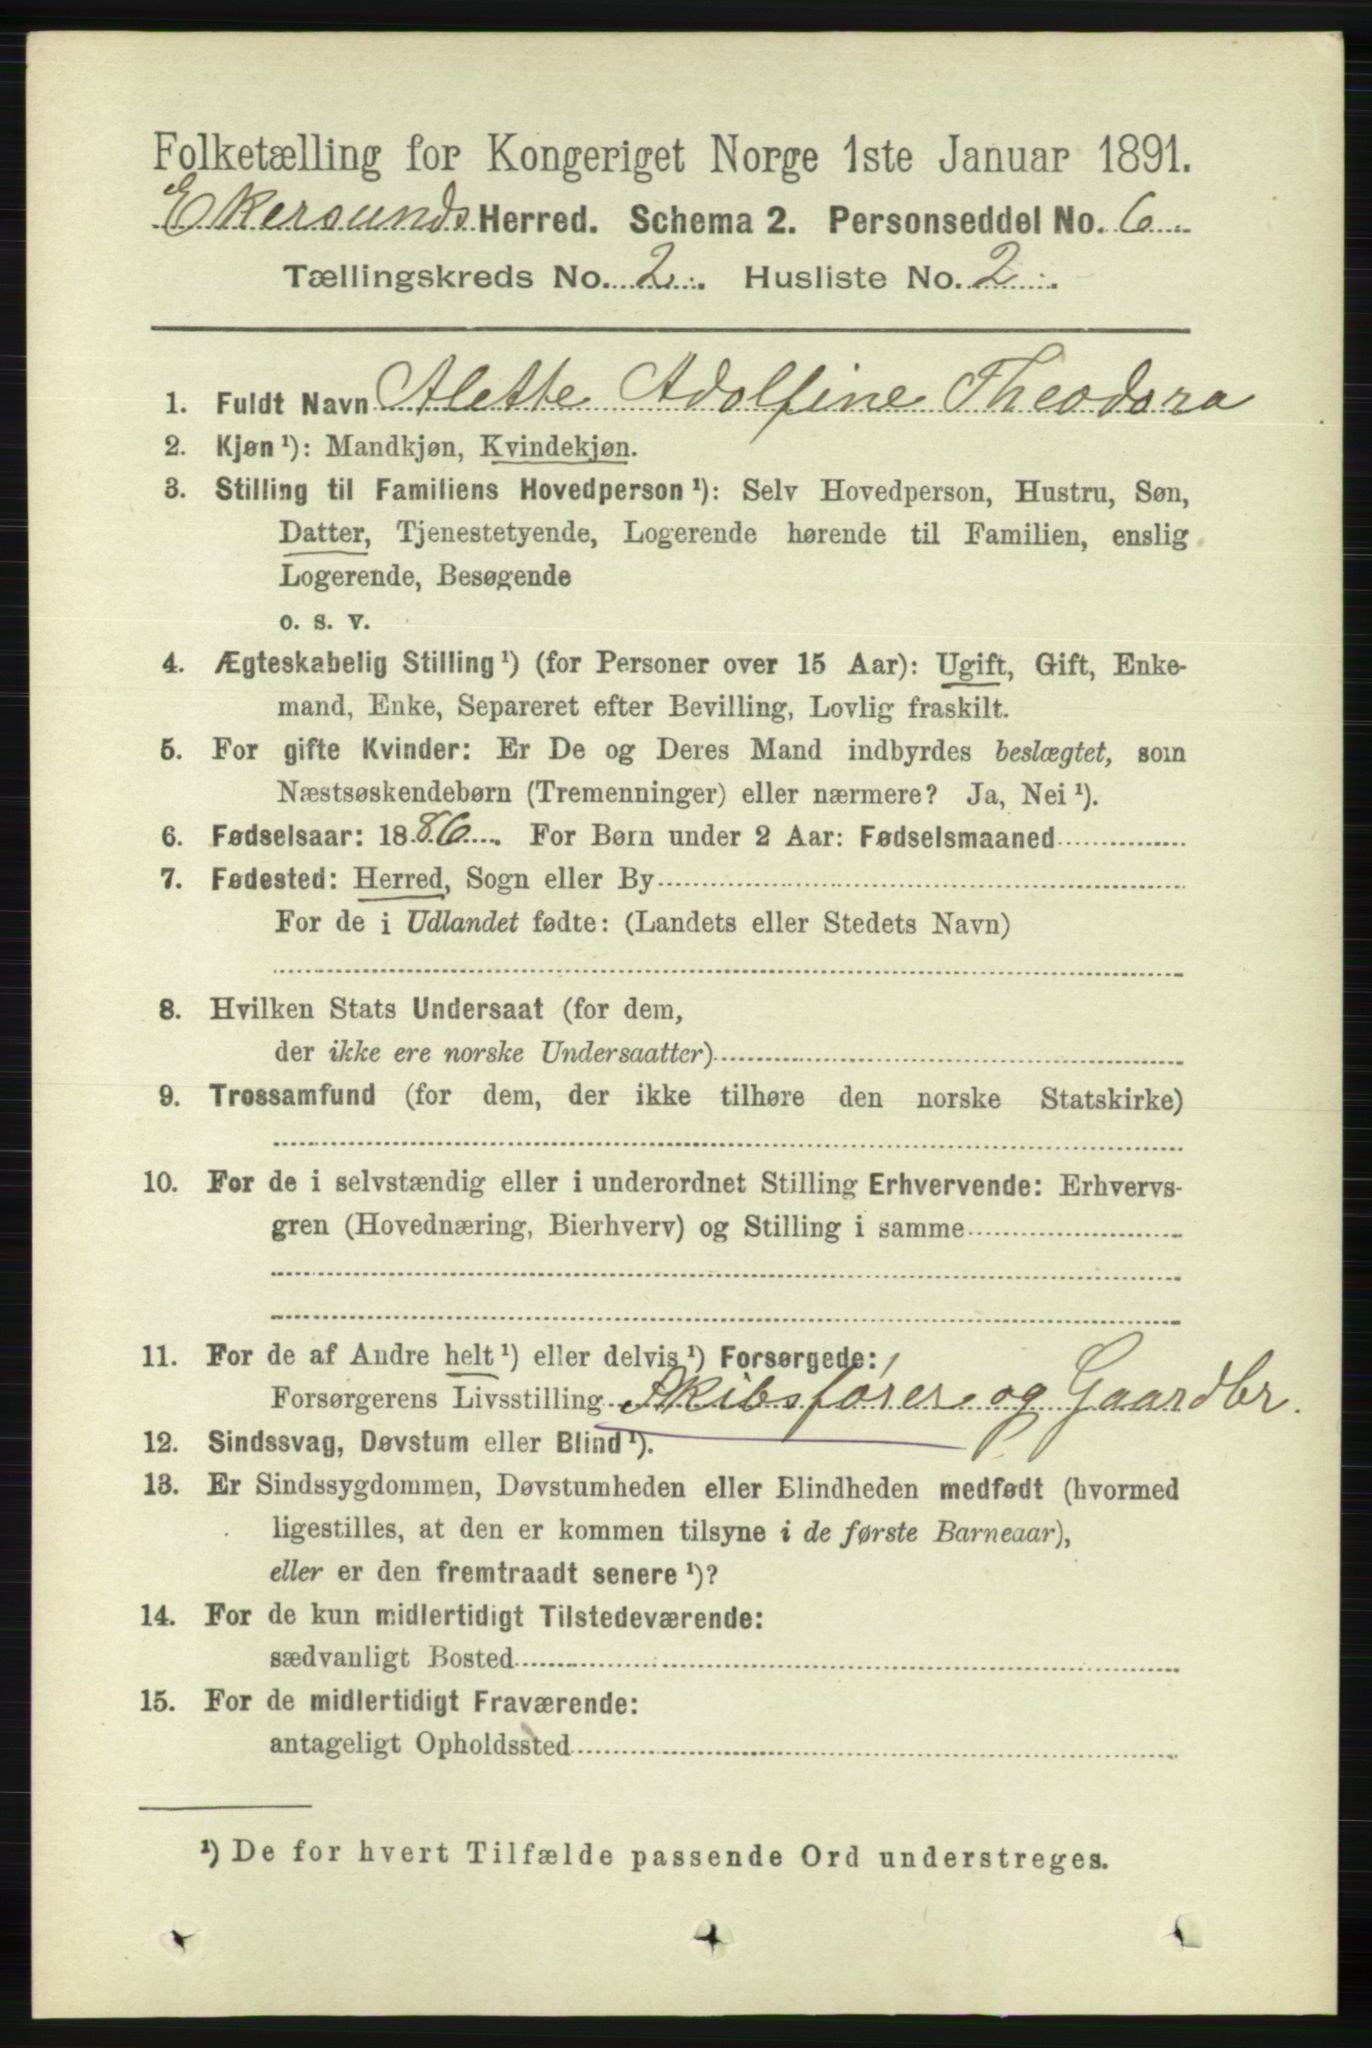 Folketælling for Kongeriget Norge 1ste Januar 1891.
Ekersunds Herred. Schema 2. Personseddel No. 6
Tællingskreds No. 2. Husliste No. 2.
1. Fuldt Navn Alette Adolfine Theodora
2. Kjøn¹): Mandkjøn, Kvindekjøn.
3. Stilling til Familiens Hovedperson¹): Selv Hovedperson, Hustru, Søn,
Datter, Tjenestetyende, Logerende hørende til Familien, enslig
Logerende, Besøgende
o. s. v.
4. Ægteskabelig Stilling¹) (for Personer over 15 Aar): Ugift, Gift, Enke-
mand, Enke, Separeret efter Bevilling, Lovlig fraskilt.
5. For gifte Kvinder: Er De og Deres Mand indbyrdes beslægtet, som
Næstsøskendebørn (Tremenninger) eller nærmere? Ja, Nei¹).
6. Fødselsaar: 1886. For Børn under 2 Aar: Fødselsmaaned
7. Fødested: Herred, Sogn eller By
For de i Udlandet fødte: (Landets eller Stedets Navn)
8. Hvilken Stats Undersaat (for dem,
der ikke ere norske Undersaatter)
9. Trossamfund (for dem, der ikke tilhøre den norske Statskirke)
10. For de i selvstændig eller i underordnet Stilling Erhvervende: Erhvervs-
gren (Hovednæring, Bierhverv) og Stilling i samme
11. For de af Andre helt¹) eller delvis¹) Forsørgede:
Forsørgerens Livsstilling Skibsfører og Gaardbr.
12. Sindssvag, Døvstum eller Blind¹).
13. Er Sindssygdommen, Døvstumheden eller Blindheden medfødt (hvormed
ligestilles, at den er kommen tilsyne i de første Barneaar),
eller er den fremtraadt senere¹)?
14. For de kun midlertidigt Tilstedeværende:
sædvanligt Bosted
15. For de midlertidigt Fraværende:
antageligt Opholdssted
¹) De for hvert Tilfælde passende Ord understreges.